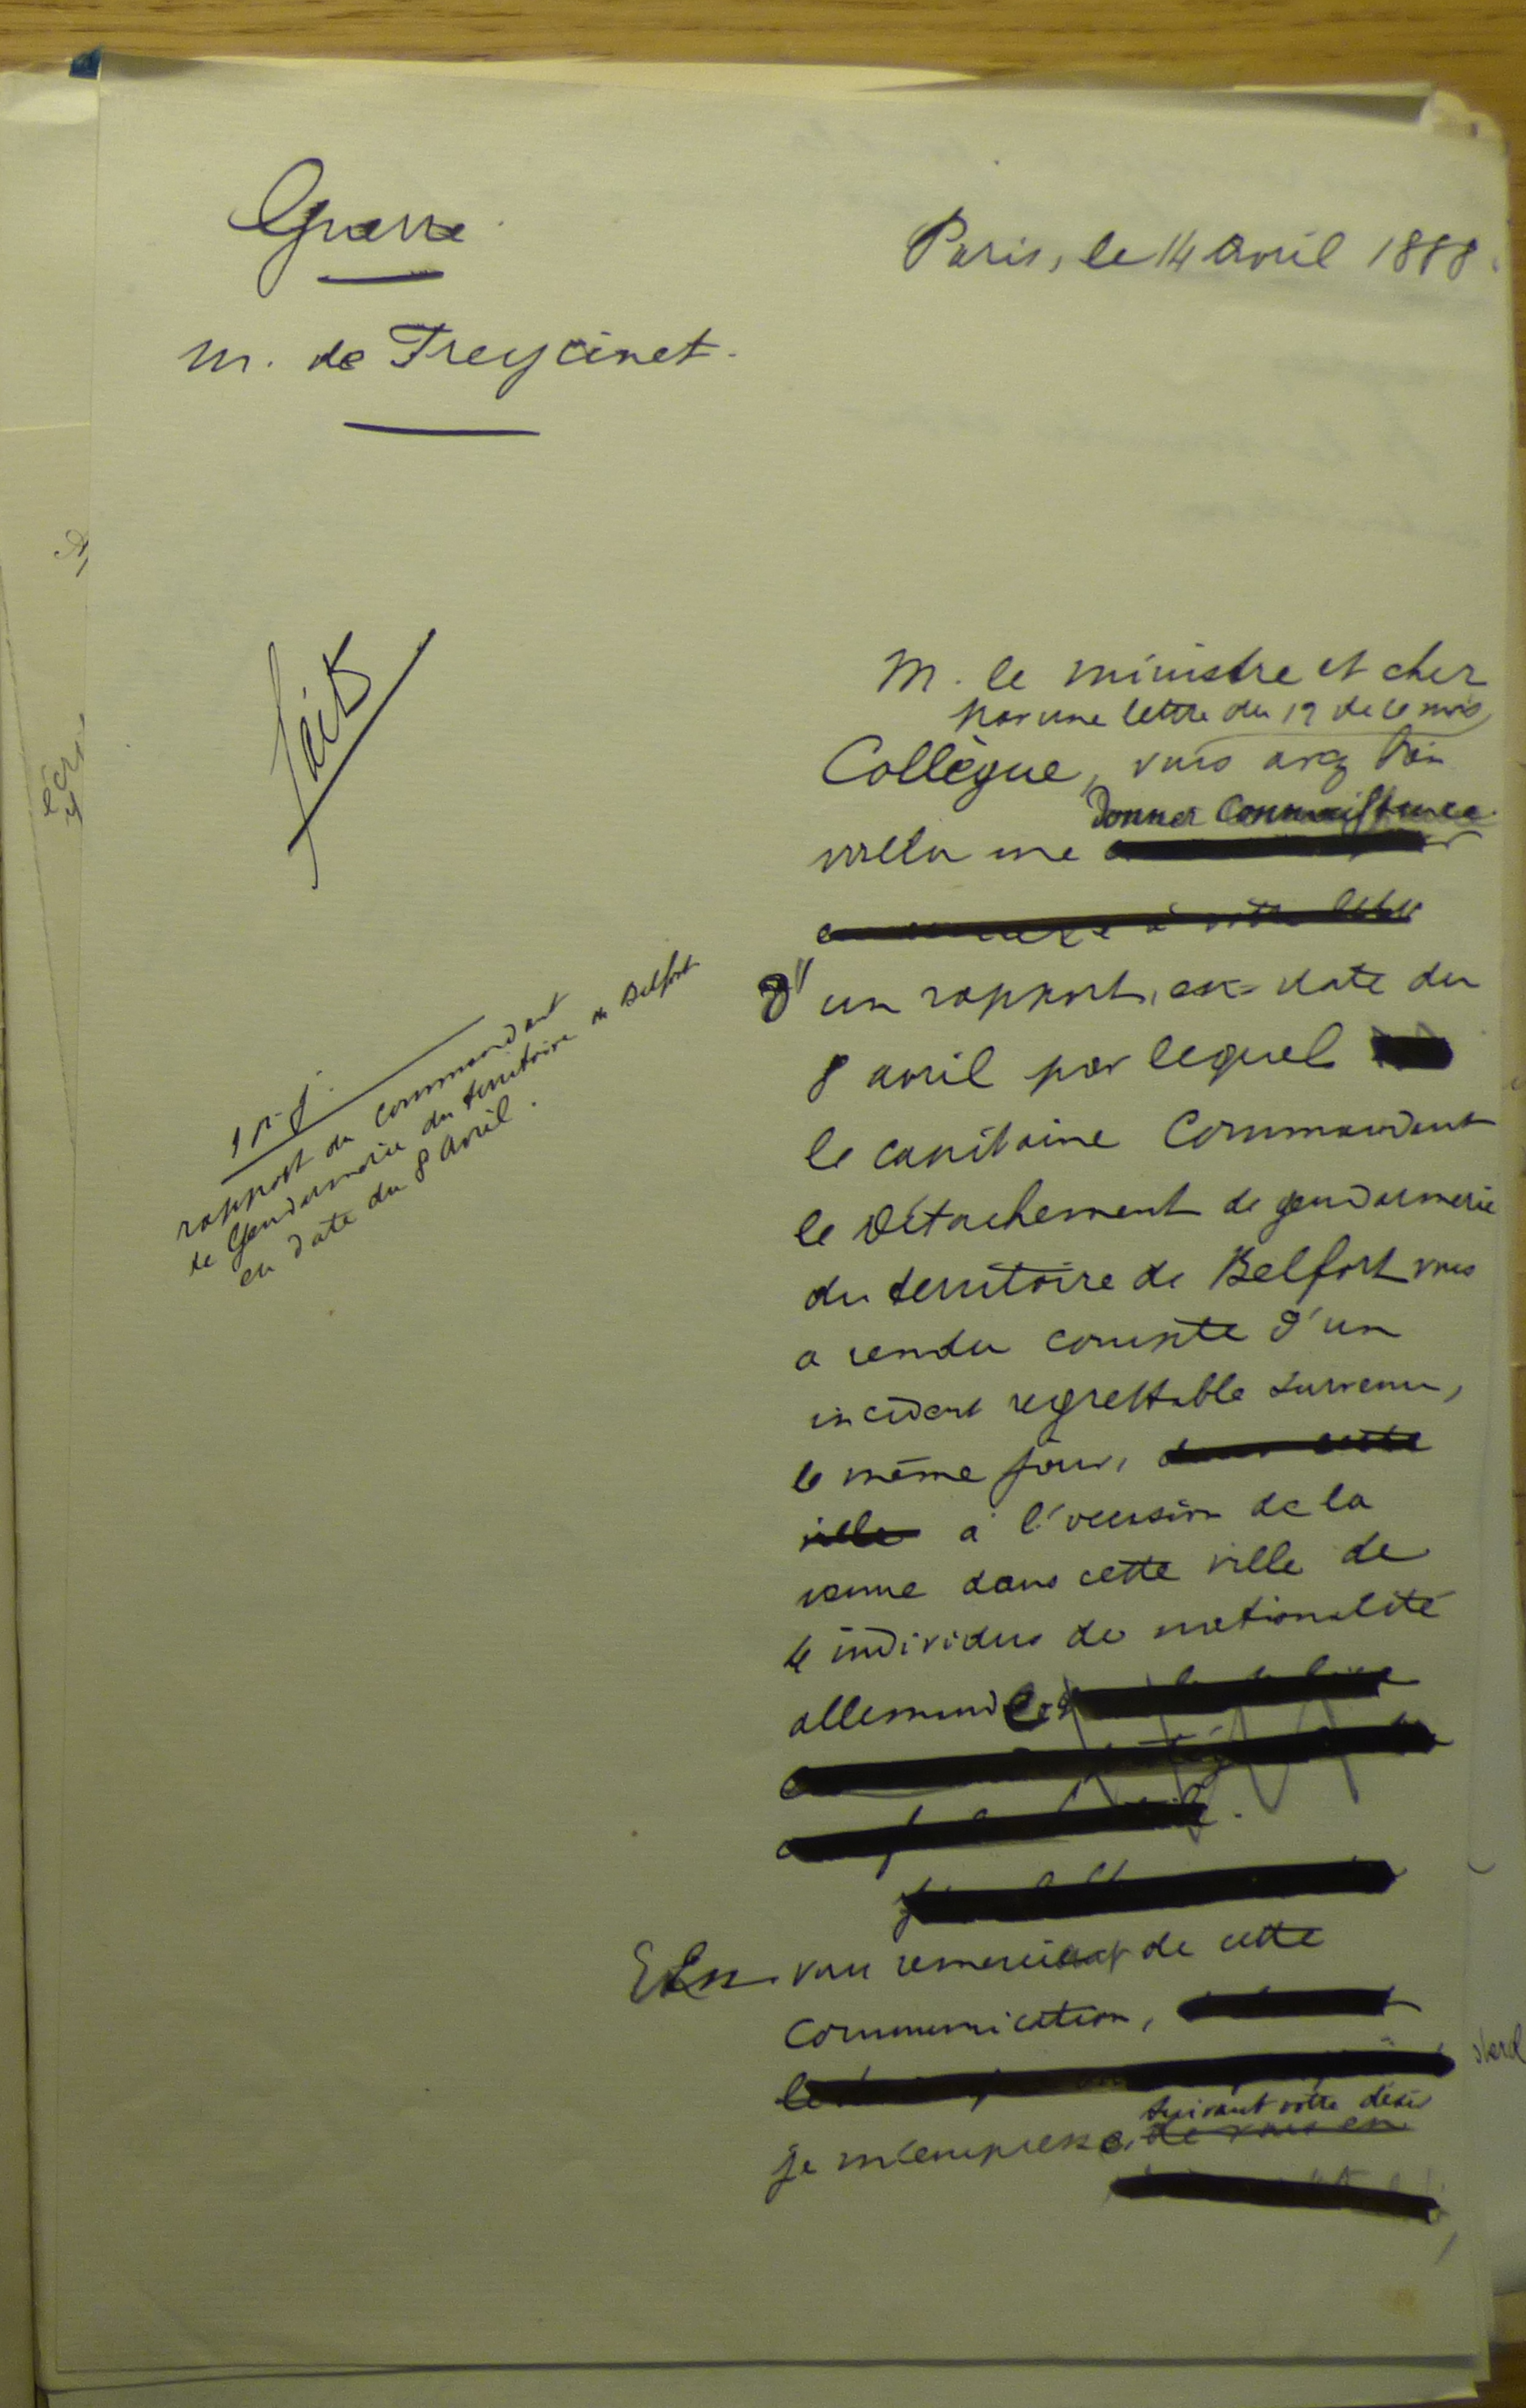 Guerre
Paris, le 14 avril 1888.
M. de Freycinet.
fait
M. le ministre et cher
par une lettre du 12 de ce mois,
Collègue, vous avez bien
donner connaissance
voulu me
à votre lettre
d'un rapport, en date du
8 avril par lequel
le capitaine Commandant
le détachement de gendarmerie
du territoire de Belfort vous
a rendu compte d'un
incident regrettable survenu,
le même jour, dans cette
ville à l'occasion de la
venue dans cette ville de
4 individus de nationalité
allemande
En vous remerciant de cette
communication,
suivant votre désir
je m'empresse, de vous en
1 p. j.
rapport du commandant
de gendarmerie du territoire de Belfort
en date du 8 avril.